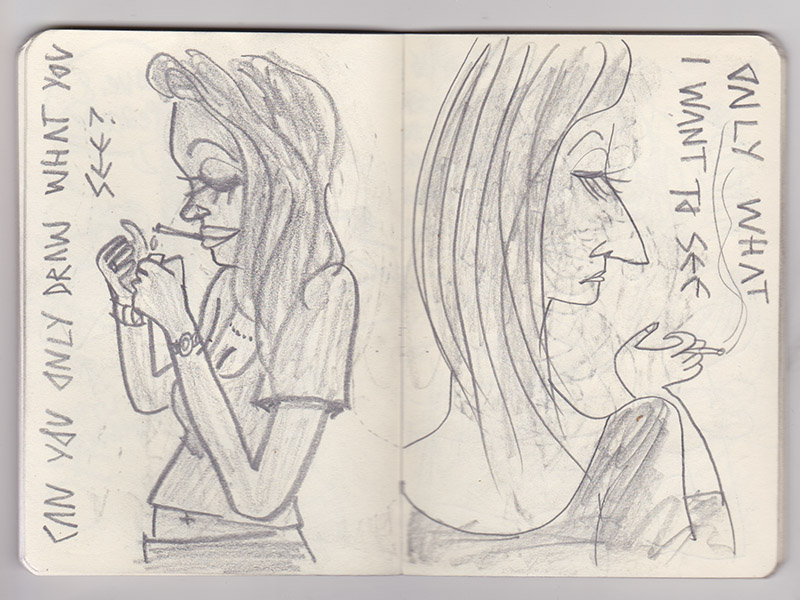 CAN YOU ONLY DRAW WHAT YOU
SEE?
ONLY WHAT
I WANT TO SEE